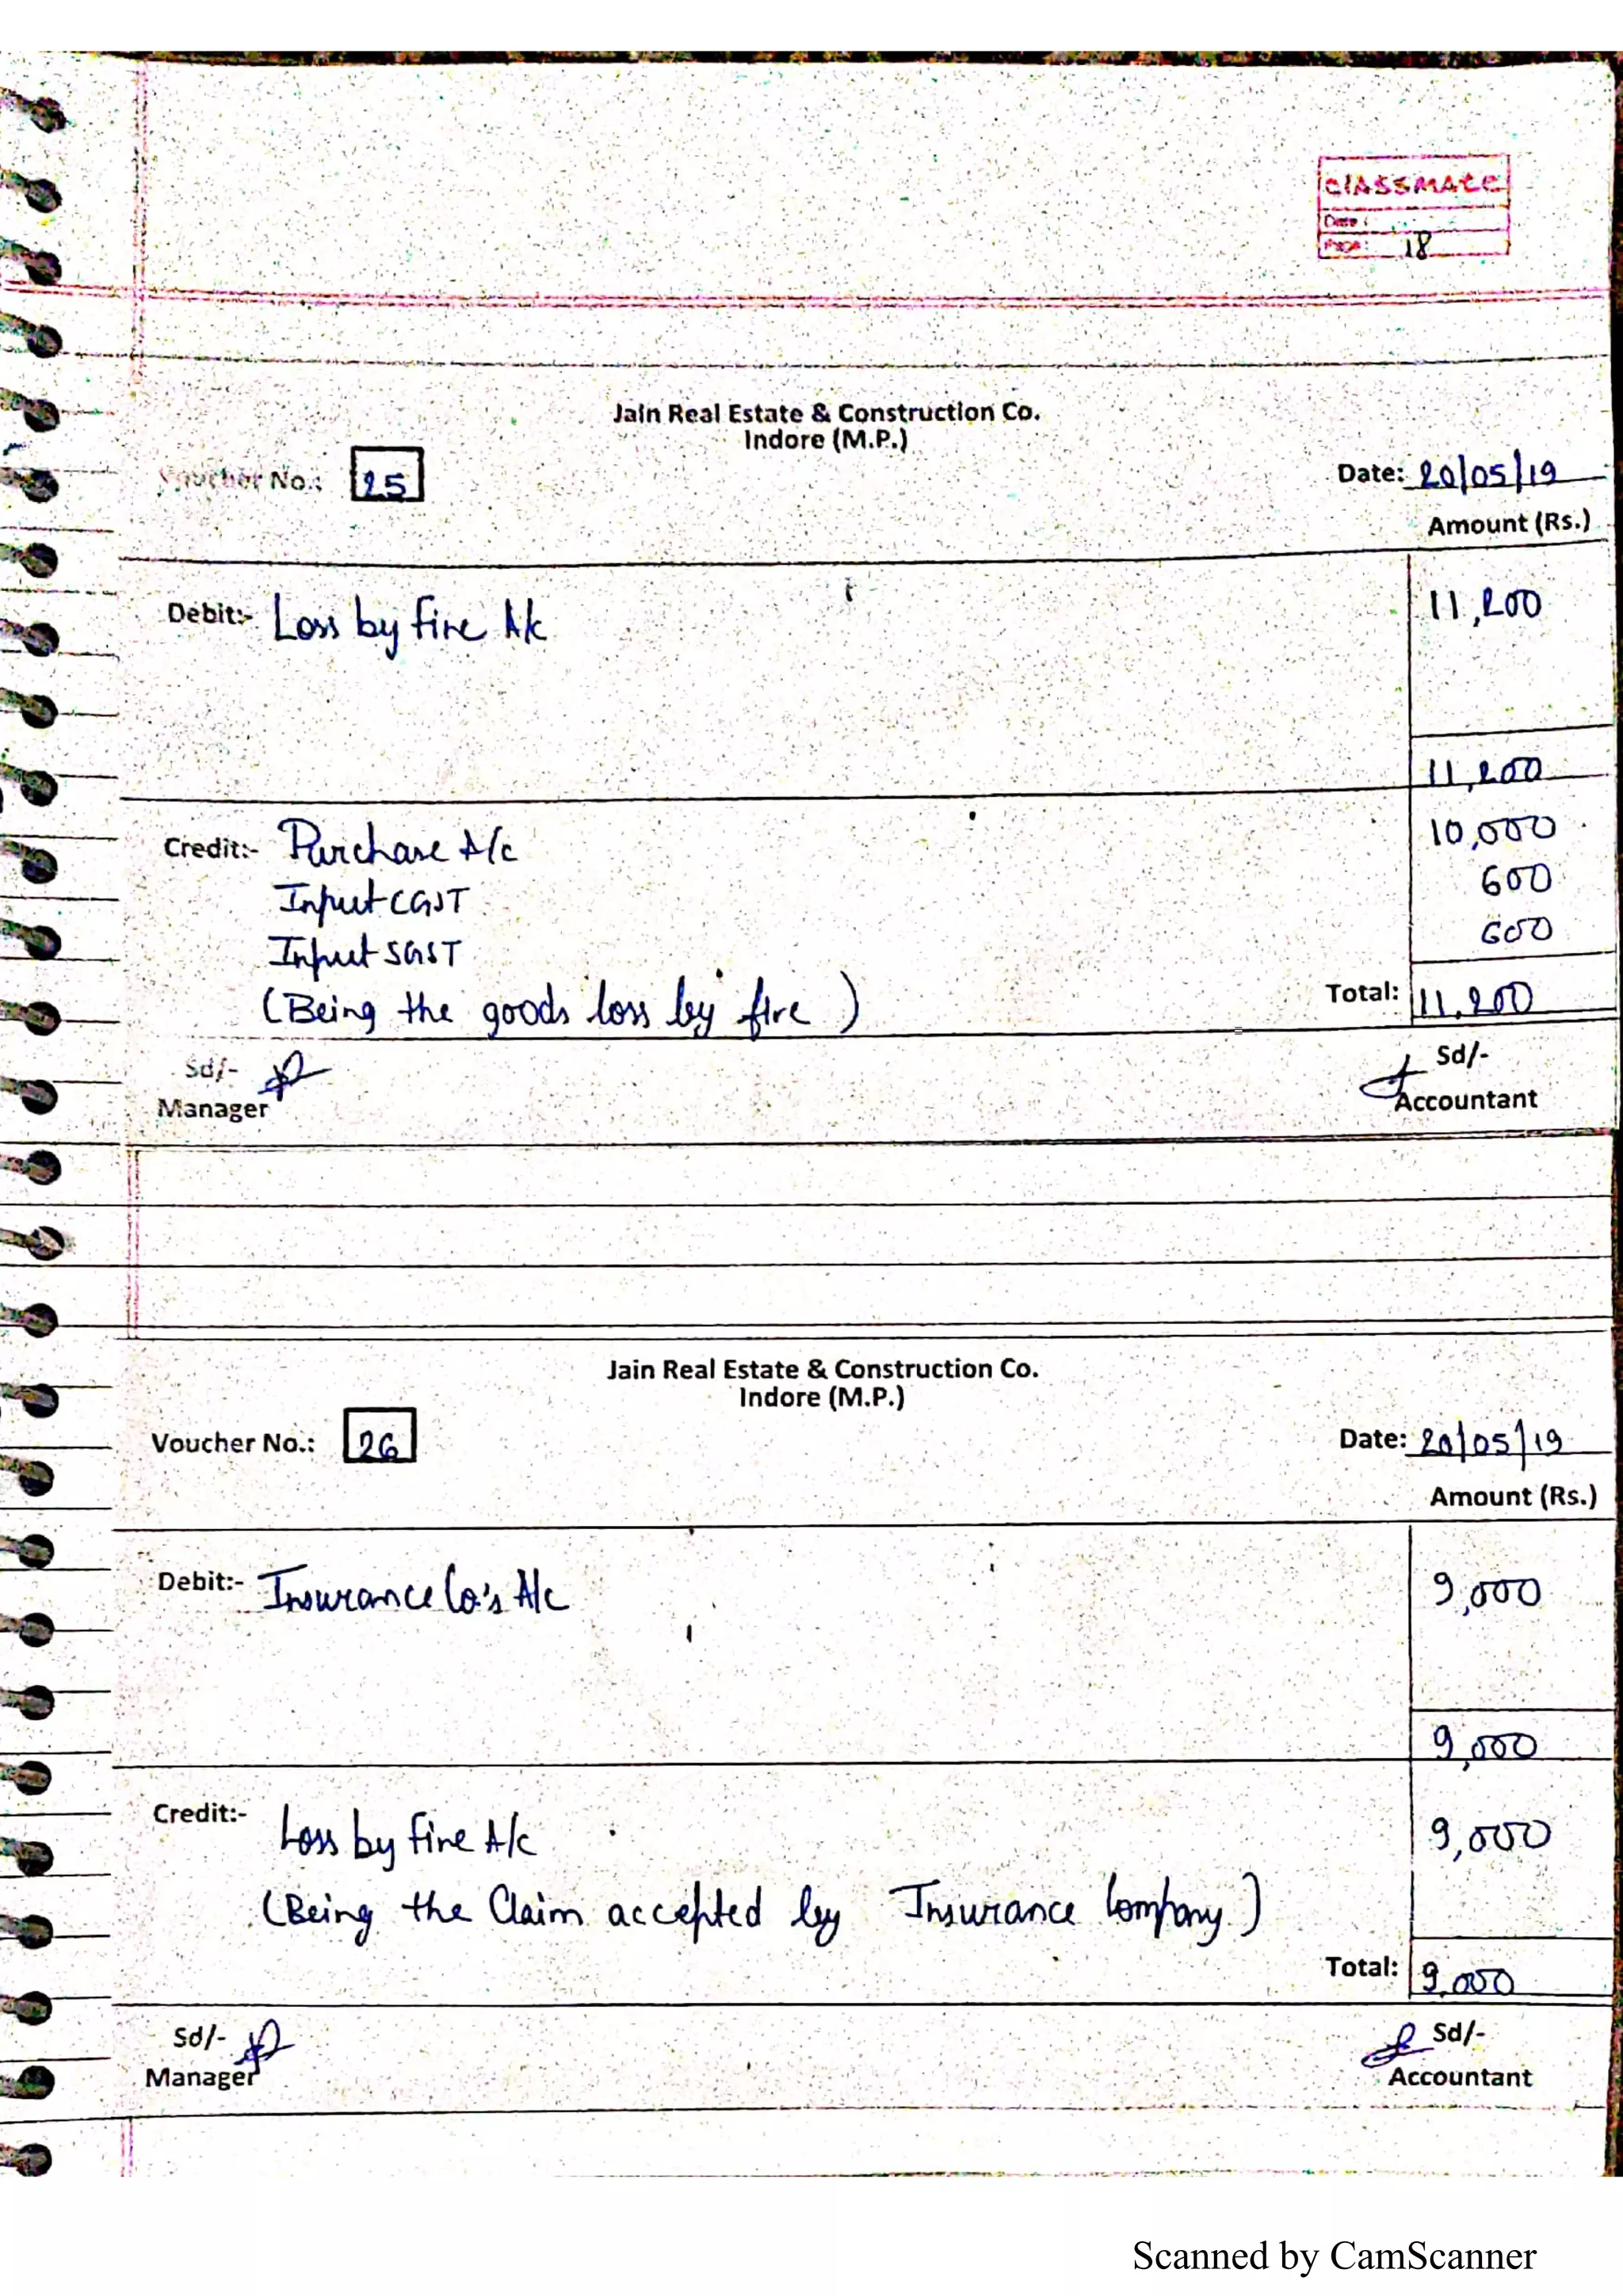 classmate
Date :
Page : 18
Jain Real Estate & Construction Co.
Indore (M.P.)
Voucher No.: 25
Date: 20/05/19
Amount (Rs.)
Debit:- Loss by fire A/c 11,200
11,200
Credit:- Purchase A/c 10,000
Input CGST 600
Input SGST 600
(Being the goods loss by fire) Total: 11,200
Sd/- Sd/-
Manager Accountant
Jain Real Estate & Construction Co.
Indore (M.P.)
Voucher No.: 26
Date: 20/05/19
Amount (Rs.)
Debit:- Insurance Co's A/c 9,000
9,000
Credit:- Loss by fire A/c 9,000
(Being the Claim accepted by Insurance Company)
Total: 9,000
Sd/- Sd/-
Manager Accountant
Scanned by CamScanner